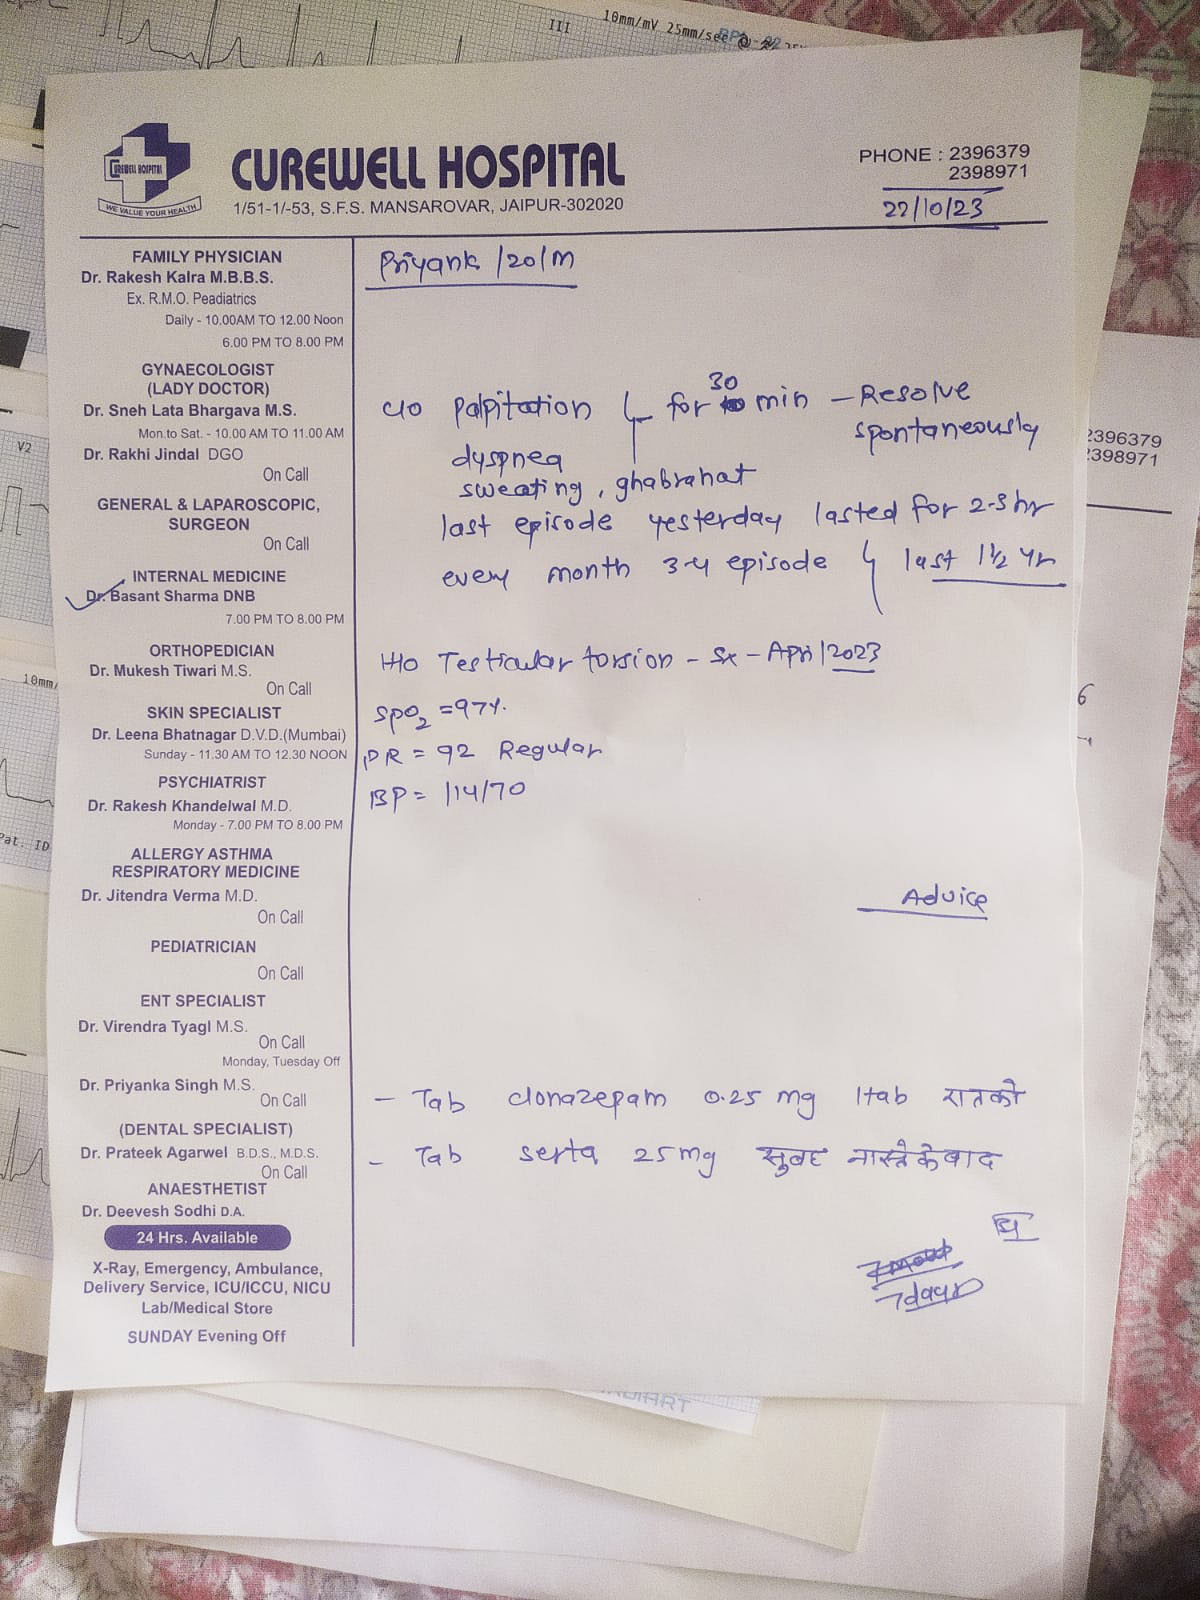 III 10mm/mV 25mm/sec
CUREWELL HOSPITAL
WE VALUE YOUR HEALTH
CUREWELL HOSPITAL
1/51-1/-53, S.F.S. MANSAROVAR, JAIPUR-302020
PHONE : 2396379
2398971
22/10/23
FAMILY PHYSICIAN
Dr. Rakesh Kalra M.B.B.S.
Ex. R.M.O. Peadiatrics
Daily - 10.00AM TO 12.00 Noon
6.00 PM TO 8.00 PM
GYNAECOLOGIST
(LADY DOCTOR)
Dr. Sneh Lata Bhargava M.S.
Mon.to Sat. - 10.00 AM TO 11.00 AM
Dr. Rakhi Jindal DGO
On Call
GENERAL & LAPAROSCOPIC,
SURGEON
On Call
INTERNAL MEDICINE
Dr. Basant Sharma DNB
7.00 PM TO 8.00 PM
ORTHOPEDICIAN
Dr. Mukesh Tiwari M.S.
On Call
SKIN SPECIALIST
Dr. Leena Bhatnagar D.V.D.(Mumbai)
Sunday - 11.30 AM TO 12.30 NOON
PSYCHIATRIST
Dr. Rakesh Khandelwal M.D.
Monday - 7.00 PM TO 8.00 PM
ALLERGY ASTHMA
RESPIRATORY MEDICINE
Dr. Jitendra Verma M.D.
On Call
PEDIATRICIAN
On Call
ENT SPECIALIST
Dr. Virendra Tyagl M.S.
On Call
Monday, Tuesday Off
Dr. Priyanka Singh M.S.
On Call
(DENTAL SPECIALIST)
Dr. Prateek Agarwel B.D.S., M.D.S.
On Call
ANAESTHETIST
Dr. Deevesh Sodhi D.A.
24 Hrs. Available
X-Ray, Emergency, Ambulance,
Delivery Service, ICU/ICCU, NICU
Lab/Medical Store
SUNDAY Evening Off
Priyank /20/M
c/o Palpitation for 30 min - Resolve
spontaneously
dyspnea
sweating, ghabrahat
last episode yesterday lasted for 2-3 hr
every month 3-4 episode last 1½ yr
H/O Testicular torsion - Sx - April 2023
SpO2 = 97%
PR = 92 Regular
BP = 114/70
Advice
- Tab clonazepam 0.25 mg 1 tab रात को
- Tab serta 25 mg सुबह नास्ते के बाद
7 days
V2
10mm/
Pat. ID
2396379
2398971